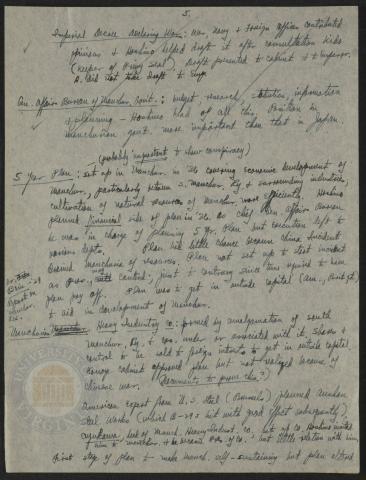 5.
Imperial Decree declaring War: War, Navy + Foreign offices contributed
opinions + Hoshino helped draft it after consultation Kido
(keeper of Privy Seal). Draft presented to cabinet + to Emperor.
A. said not take draft to
Gen. Affairs Bureau of Manchur. Govt.: budget research, statistics, information
+ planning - Hoshino head of all this. Position in
manchurian govt. more important than that in Japan.
(probably important to show conspiracy)
5 year Plan: set up in Manchur. in '36 covering economic development of
manchur., particularly between S. Manchur. Ry + surrounding industries,
cultivation of natural resources of manchur. more efficiently. Hoshino
planned financial side of plan in '36. as chief Gen. Affairs Bureau
he was in charge of planning 5 yr. Plan but execution left to
various depts. Plan had little chance because China Incident
drained manchuria of resources. Plan not set up to test Incident
as control; just to contrary since time required to have
plan pay off. Plan was to get in outside capital (Am., British)
to aid in development of Manchur.
Manchurian Heavy Industry Co: formed by amalgamation of South
manchur. Ry. + cos. under or associated with it. Shares +
control to be sold to foreign interests to get in outside capital
Konoye cabinet approved plan but not realized because of
Chinese war. (Documents to prove this?)
American expert from U.S. Steel planned Anshan
Steel Works (which B-29s hit with great effect subsequently).
Ayukawa, head of Manch. Heavy Indust. Co. but Hoshino invited
him to manchur. + he became Pres. of Co. but little relation with him.
First step of plan to make manch. self-sustaining but plan altered